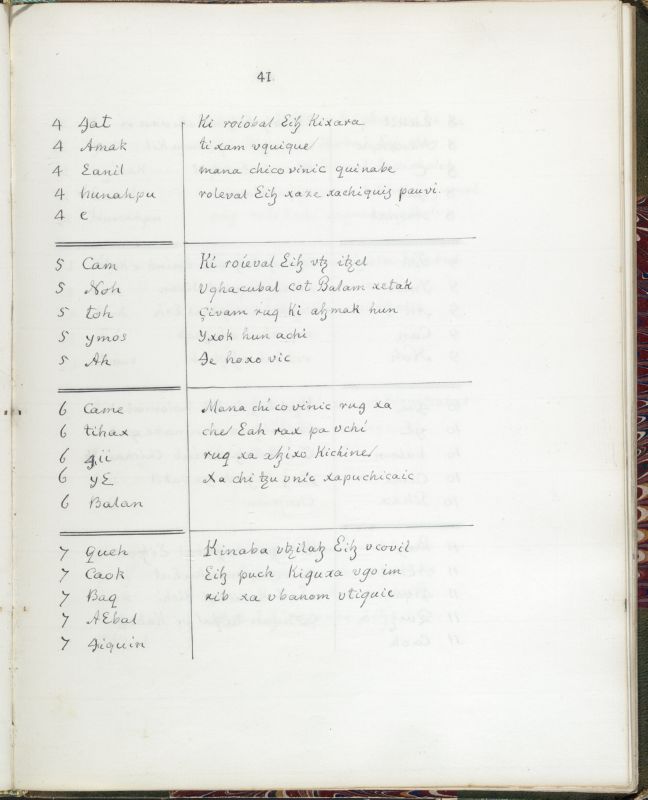 41
4 ꜭat Ki roióbal Eiꜩ Kixara
4 Amak ti xam vquique
4 Eanil mana chico vinic quinabe
4 hunahpu roleval Eiꜩ xaxe xachiquiꜩ pauvi.
4 e
5 Cam Ki roíeval Eiꜩ vtꜩ itꜩel
5 Noh vghacubal cot Balam xetak
5 toh Çivam ruq Ki aꜩmak hun
5 ymos Yxok hun achi
5 Ah ꜭe hoxo vic
6 Came Mana chi co vinic ruq xa
6 tihax che Eah rax pa vchi
6 ꜭii ruq xa aꜩixo Kichine
6 yE Xa chi tꜩu vnic xapuchicaic
6 Balan
7 queh Kinaba vtꜩilaꜩ Eiꜩ vcovil
7 Caok Eiꜩ puch Kiguxa vgoim
7 Baq rib xa vbanom vtiquic
7 AEbal
7 ꜭiquin